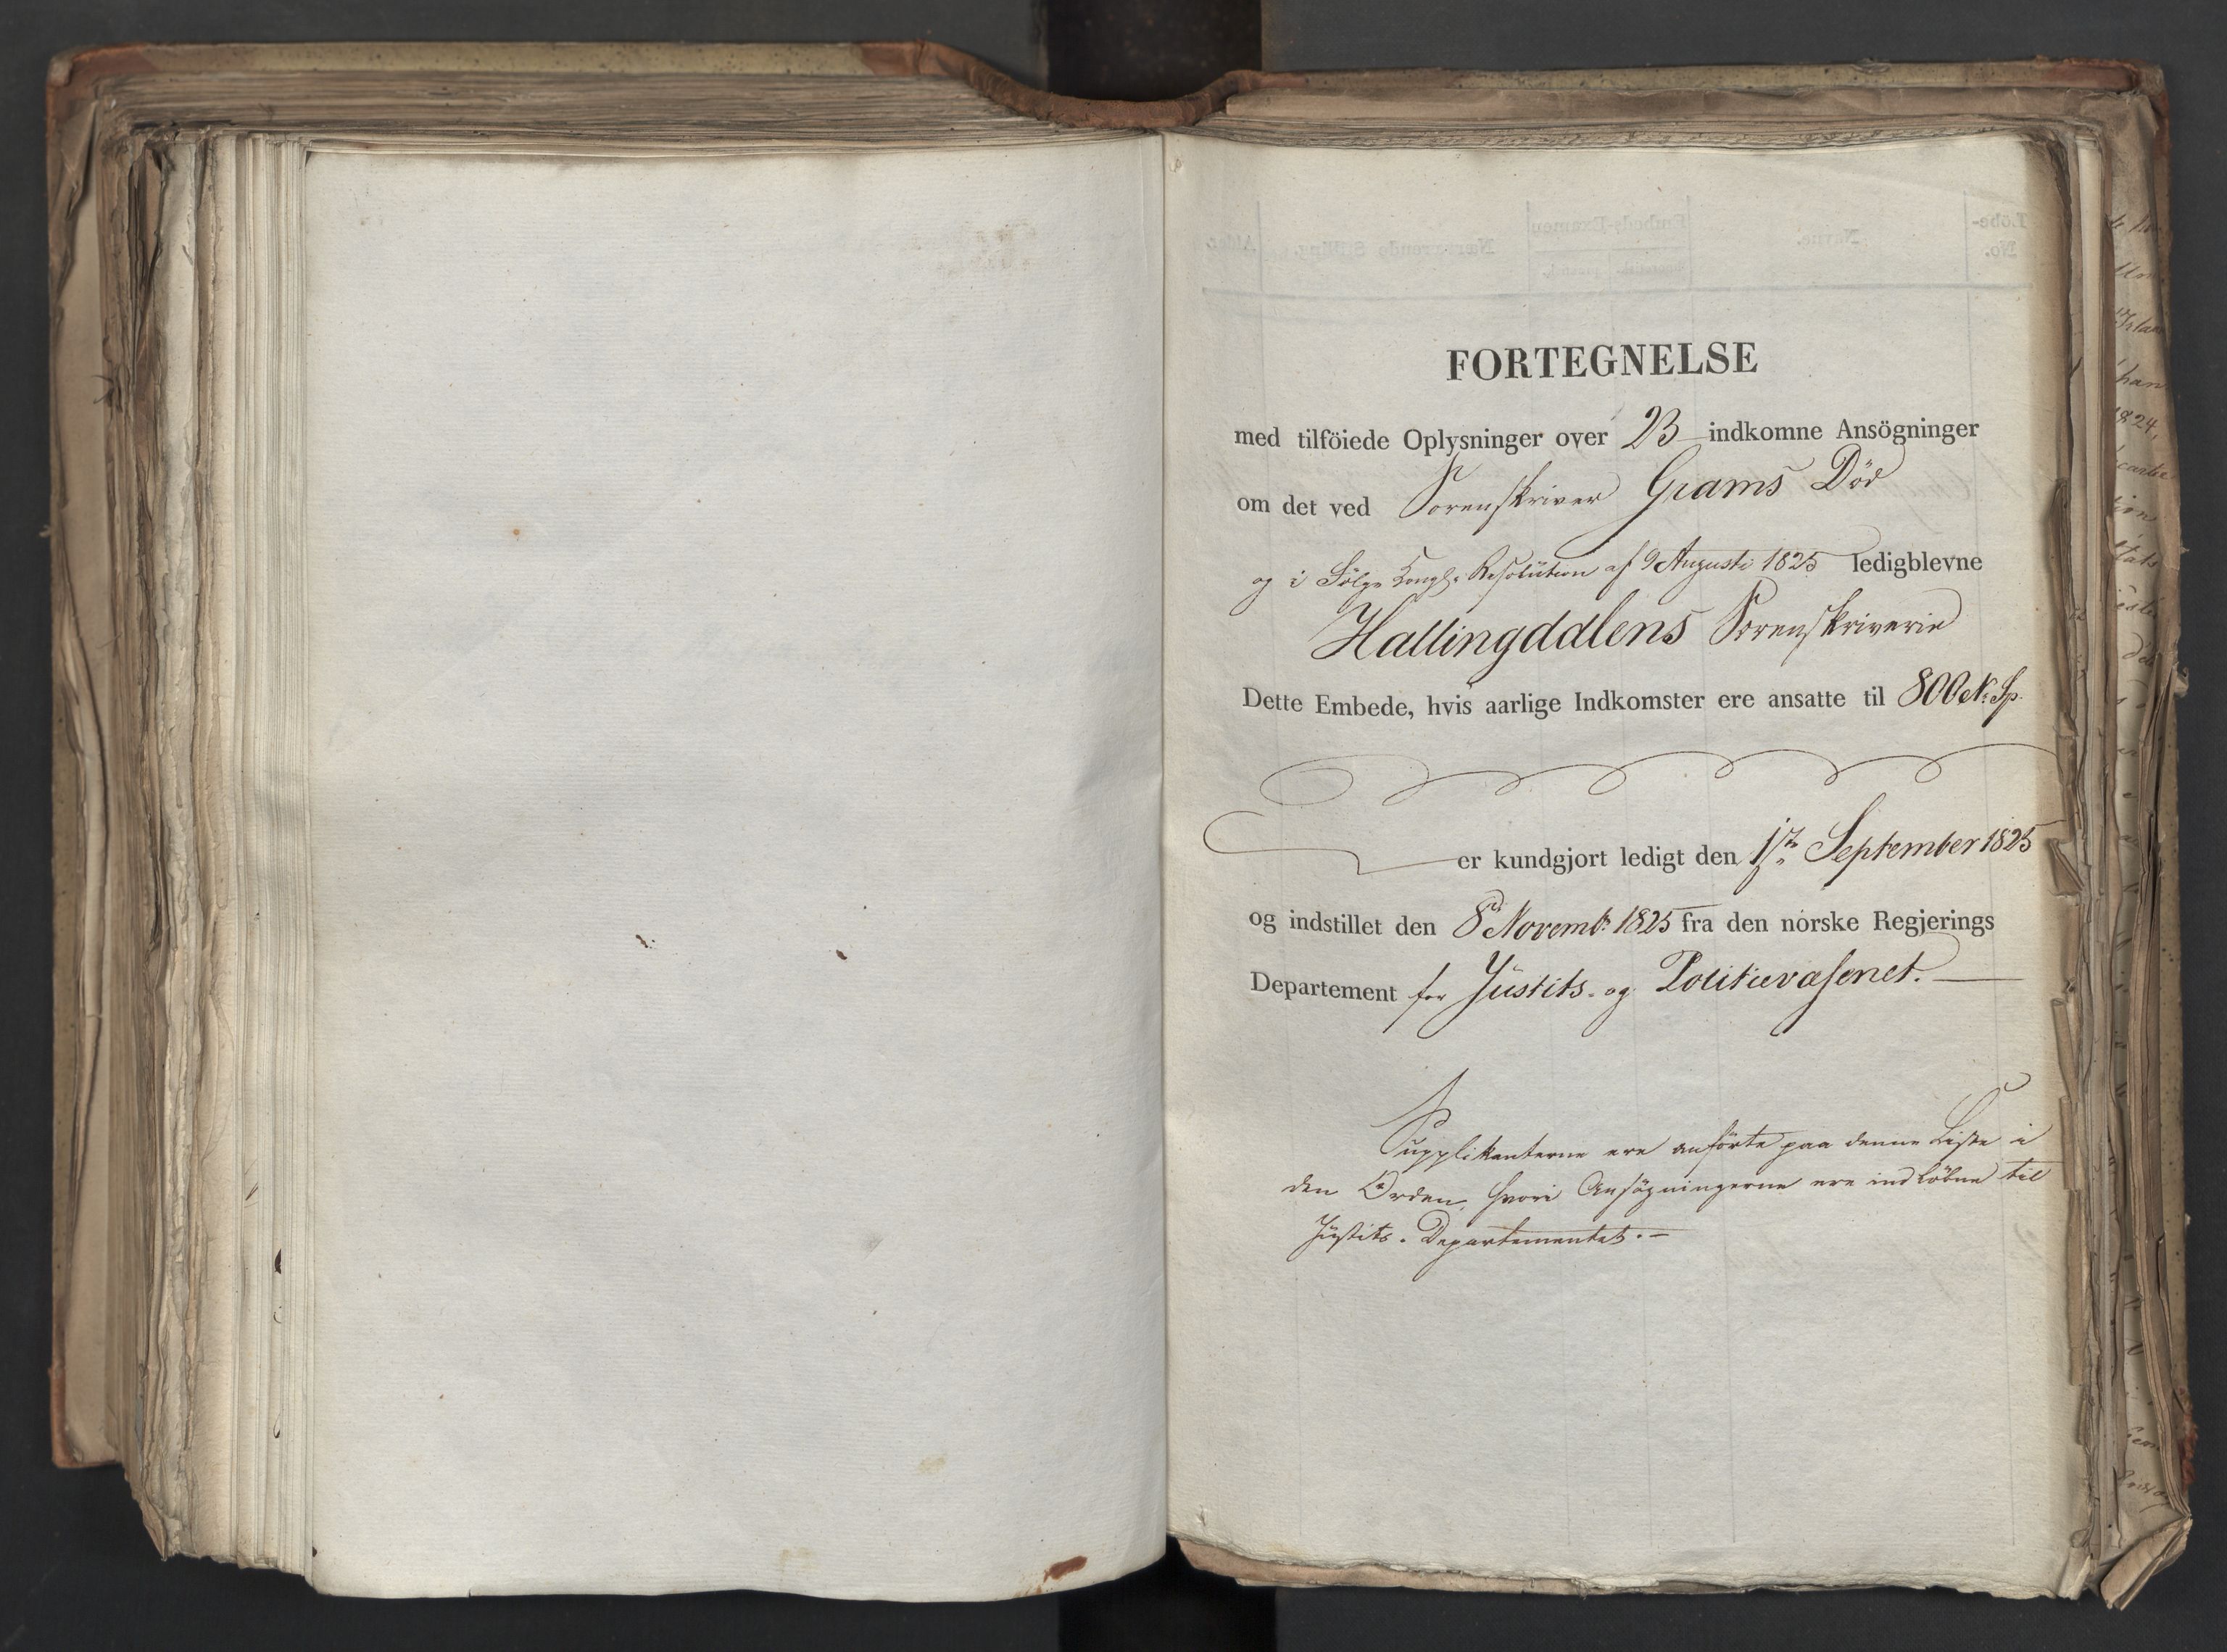 FORTEGNELSE
med tilföiede Oplysninger over 23 indkomne Ansögninger
om det ved Sorenskriver Grams Död
og i Fölge Kongl. Resolution af 9 Augusti 1825 ledigblevne
Hallingdalens Sorenskriverie
Dette Embede, hvis aarlige Indkomster ere ansatte til 800 Sp.
er kundgjort ledigt den September 1825
og indstillet den 8 Novembr 1825 fra den norske Regjerings
Departement for Justits- og Politievæsenet.
Supplikanterne ere anförte paa denne Liste i
den Orden, hvori Ansögningerne ere indlöbne til
Justits-Departementet.-